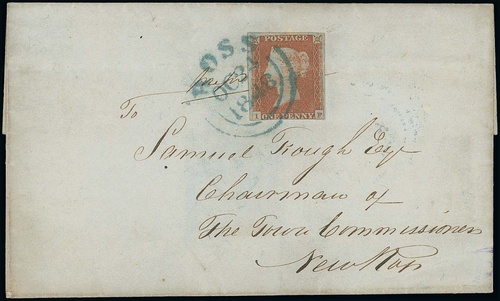 ROSS
1846
POSTAGE
ONE PENNY
To
Samuel Rough Esqr
Chairman of
The Town Commissioners
New Ross